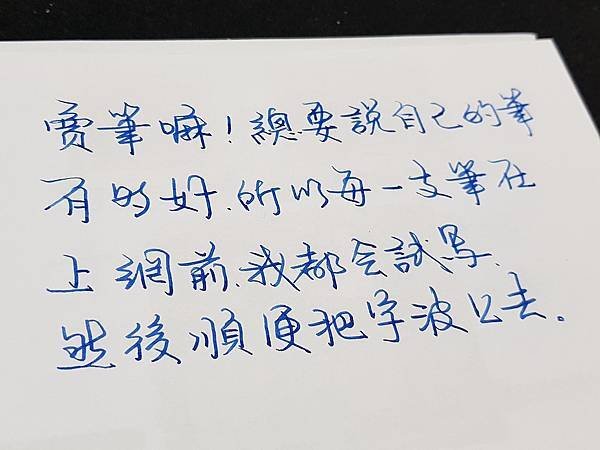 賣筆嘛！總要說自己的筆
有的好.所以每一支筆在
上網前.我都会試写.
然後順便把字波上去.